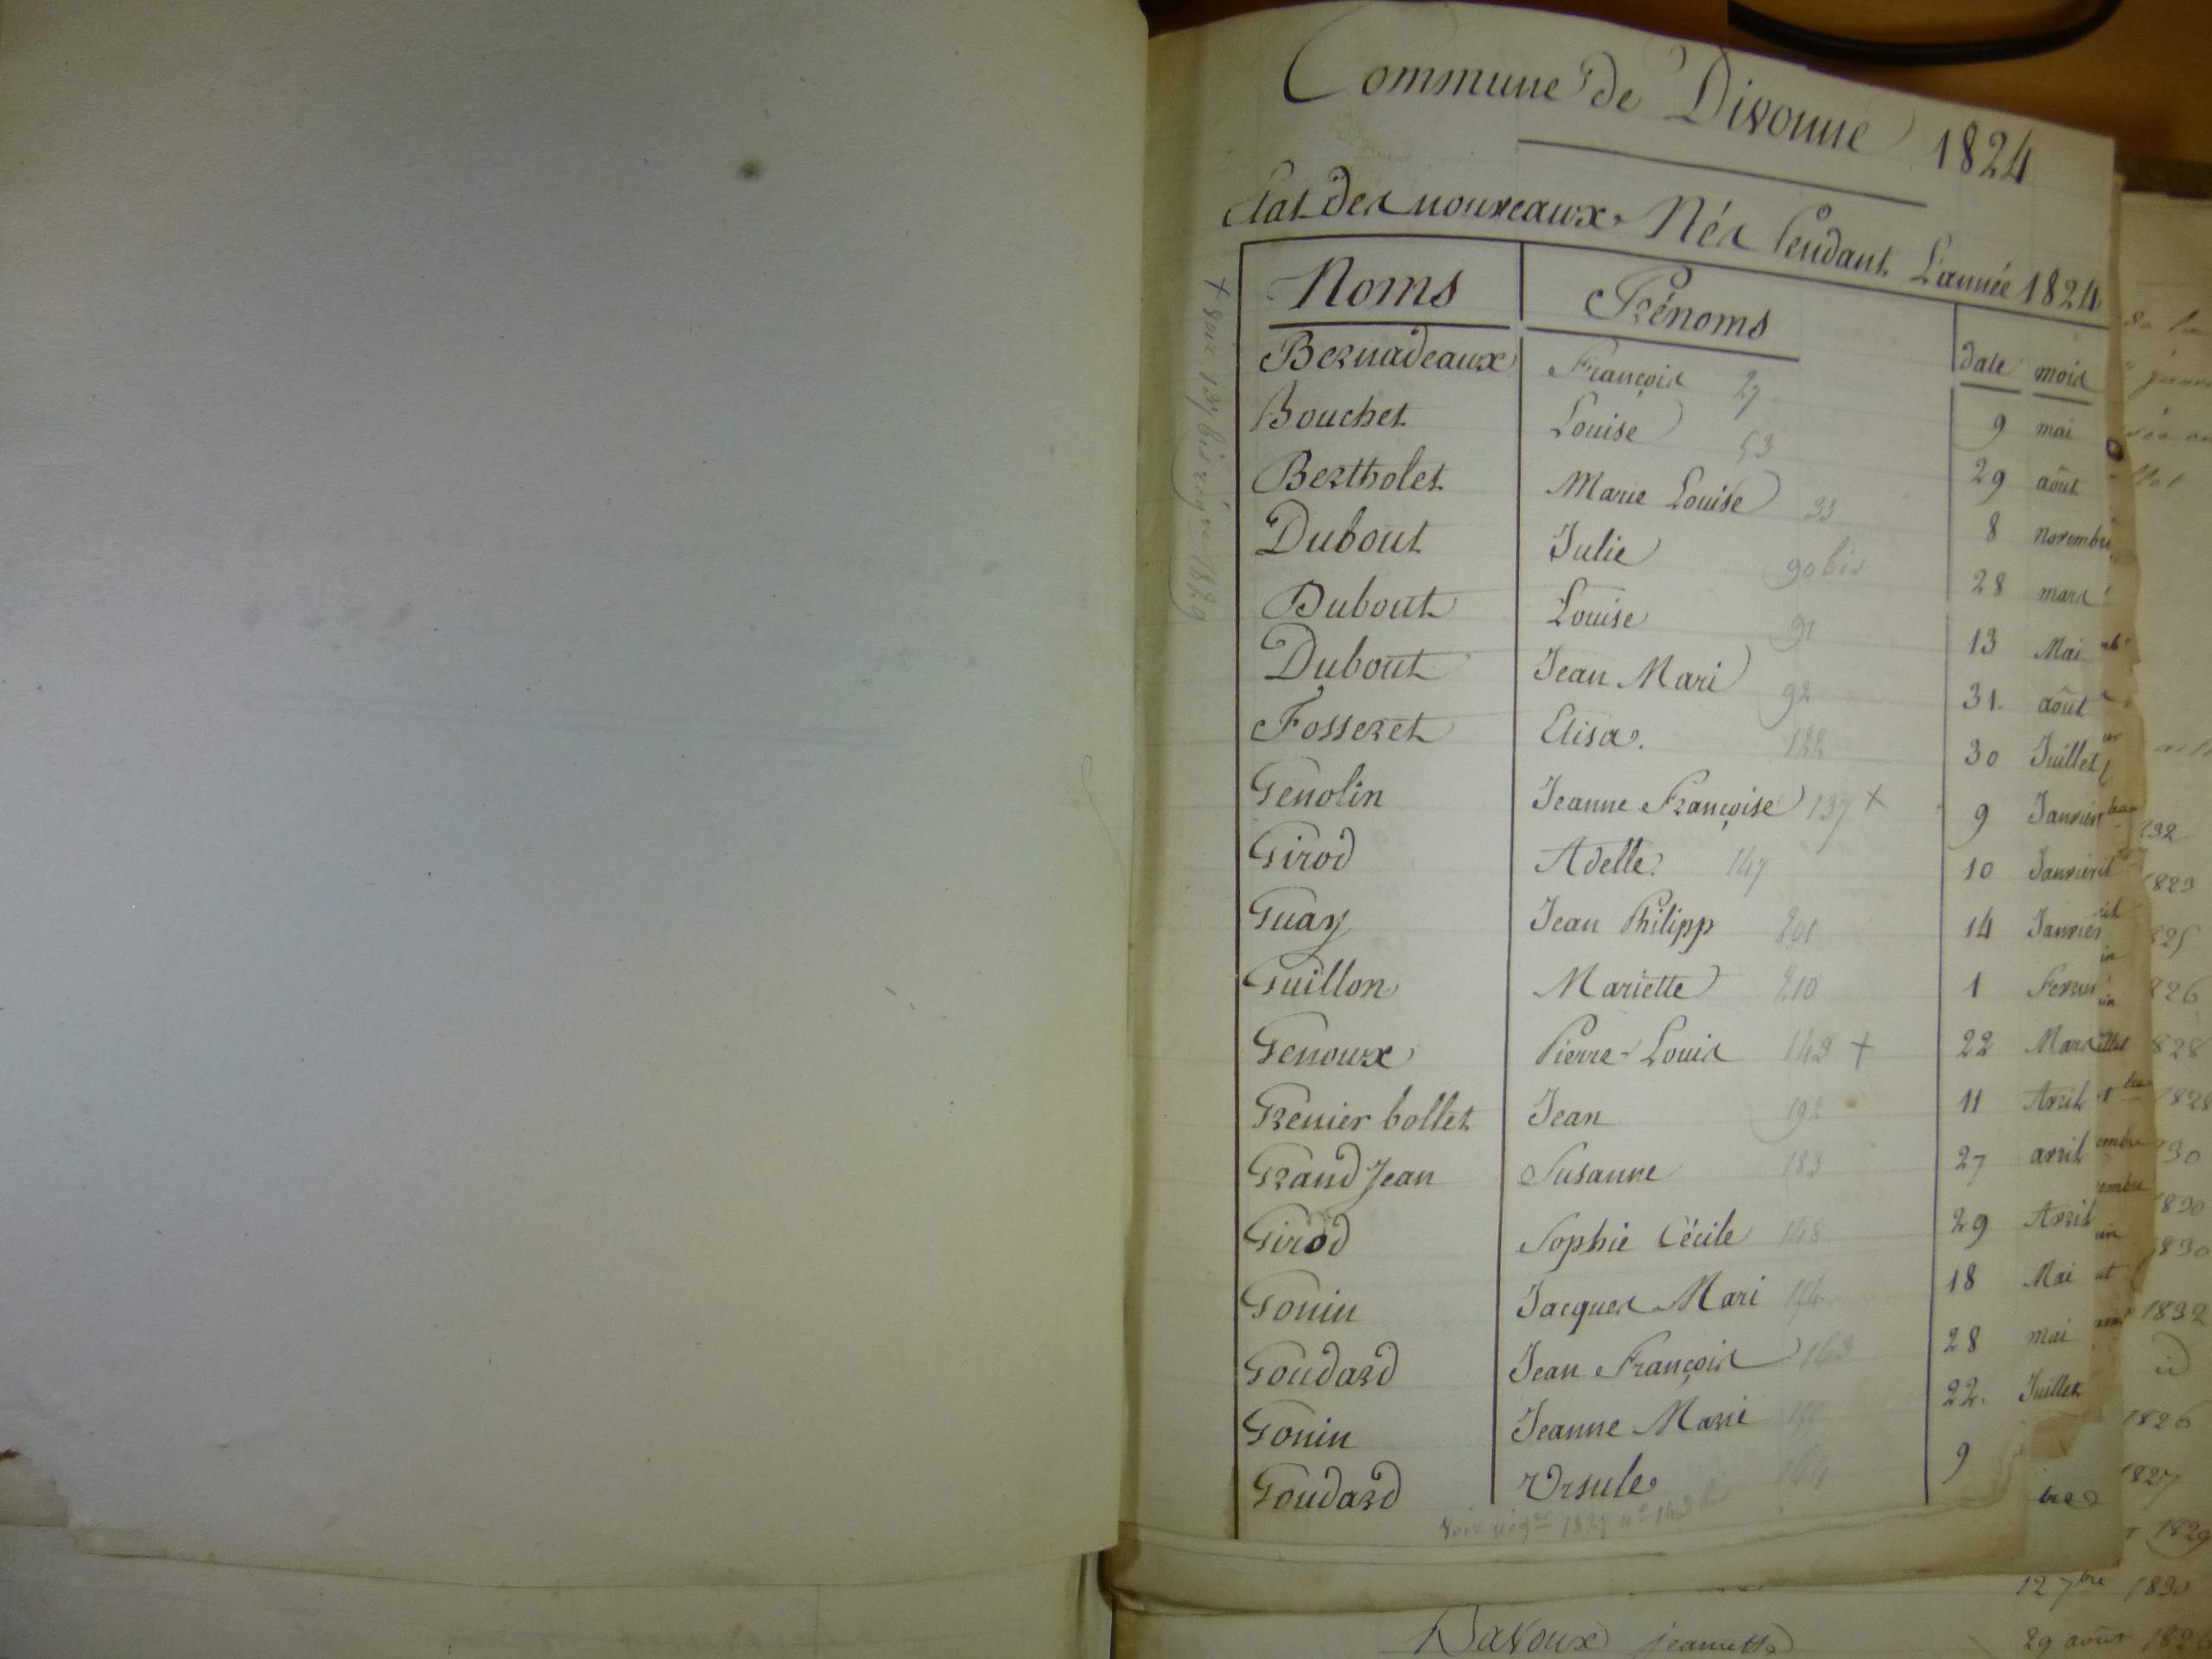 Commune de Divonne 1824
Etat des nouveaux Nés Pendant L'année 1824
Noms Prénoms date mois
Bernadeaux François 27 9 mai
Bouchet Louise 53 29 août
Bertholet Marie Louise 33 8 novembre
Dubout Julie 90 bis 28 mars
Dubout Louise 91 13 Mai
Dubout Jean Mari 92 31. août
Fosseret Elisa. 122 30 Juillet
Genolin Jeanne Françoise 137 + 9 Janvier
Girod Adelle. 147 10 Janvier
Guay Jean Philipp 201 14 Janvier
Guillon Mariette 210 1 Fevrier
Genoux Pierre-Louis 143 + 22 Mars
Grenier bollet Jean 192 11 Avril
Grand Jean Susanne 183 27 avril
Girod Sophie Cécile 148 29 Avril
Gonin Jacques Mari 18 Mai
Goudard Jean François 163 28 mai
Gonin Jeanne Marie 22. Juillet
Goudard Ursule 164 9
+ voir 137 bis
1829
voir
Davoux jeannette 29 août
12 7bre 1830
1823
826
828
1828
30
1830
1830
1832
id
1826
1827
1829